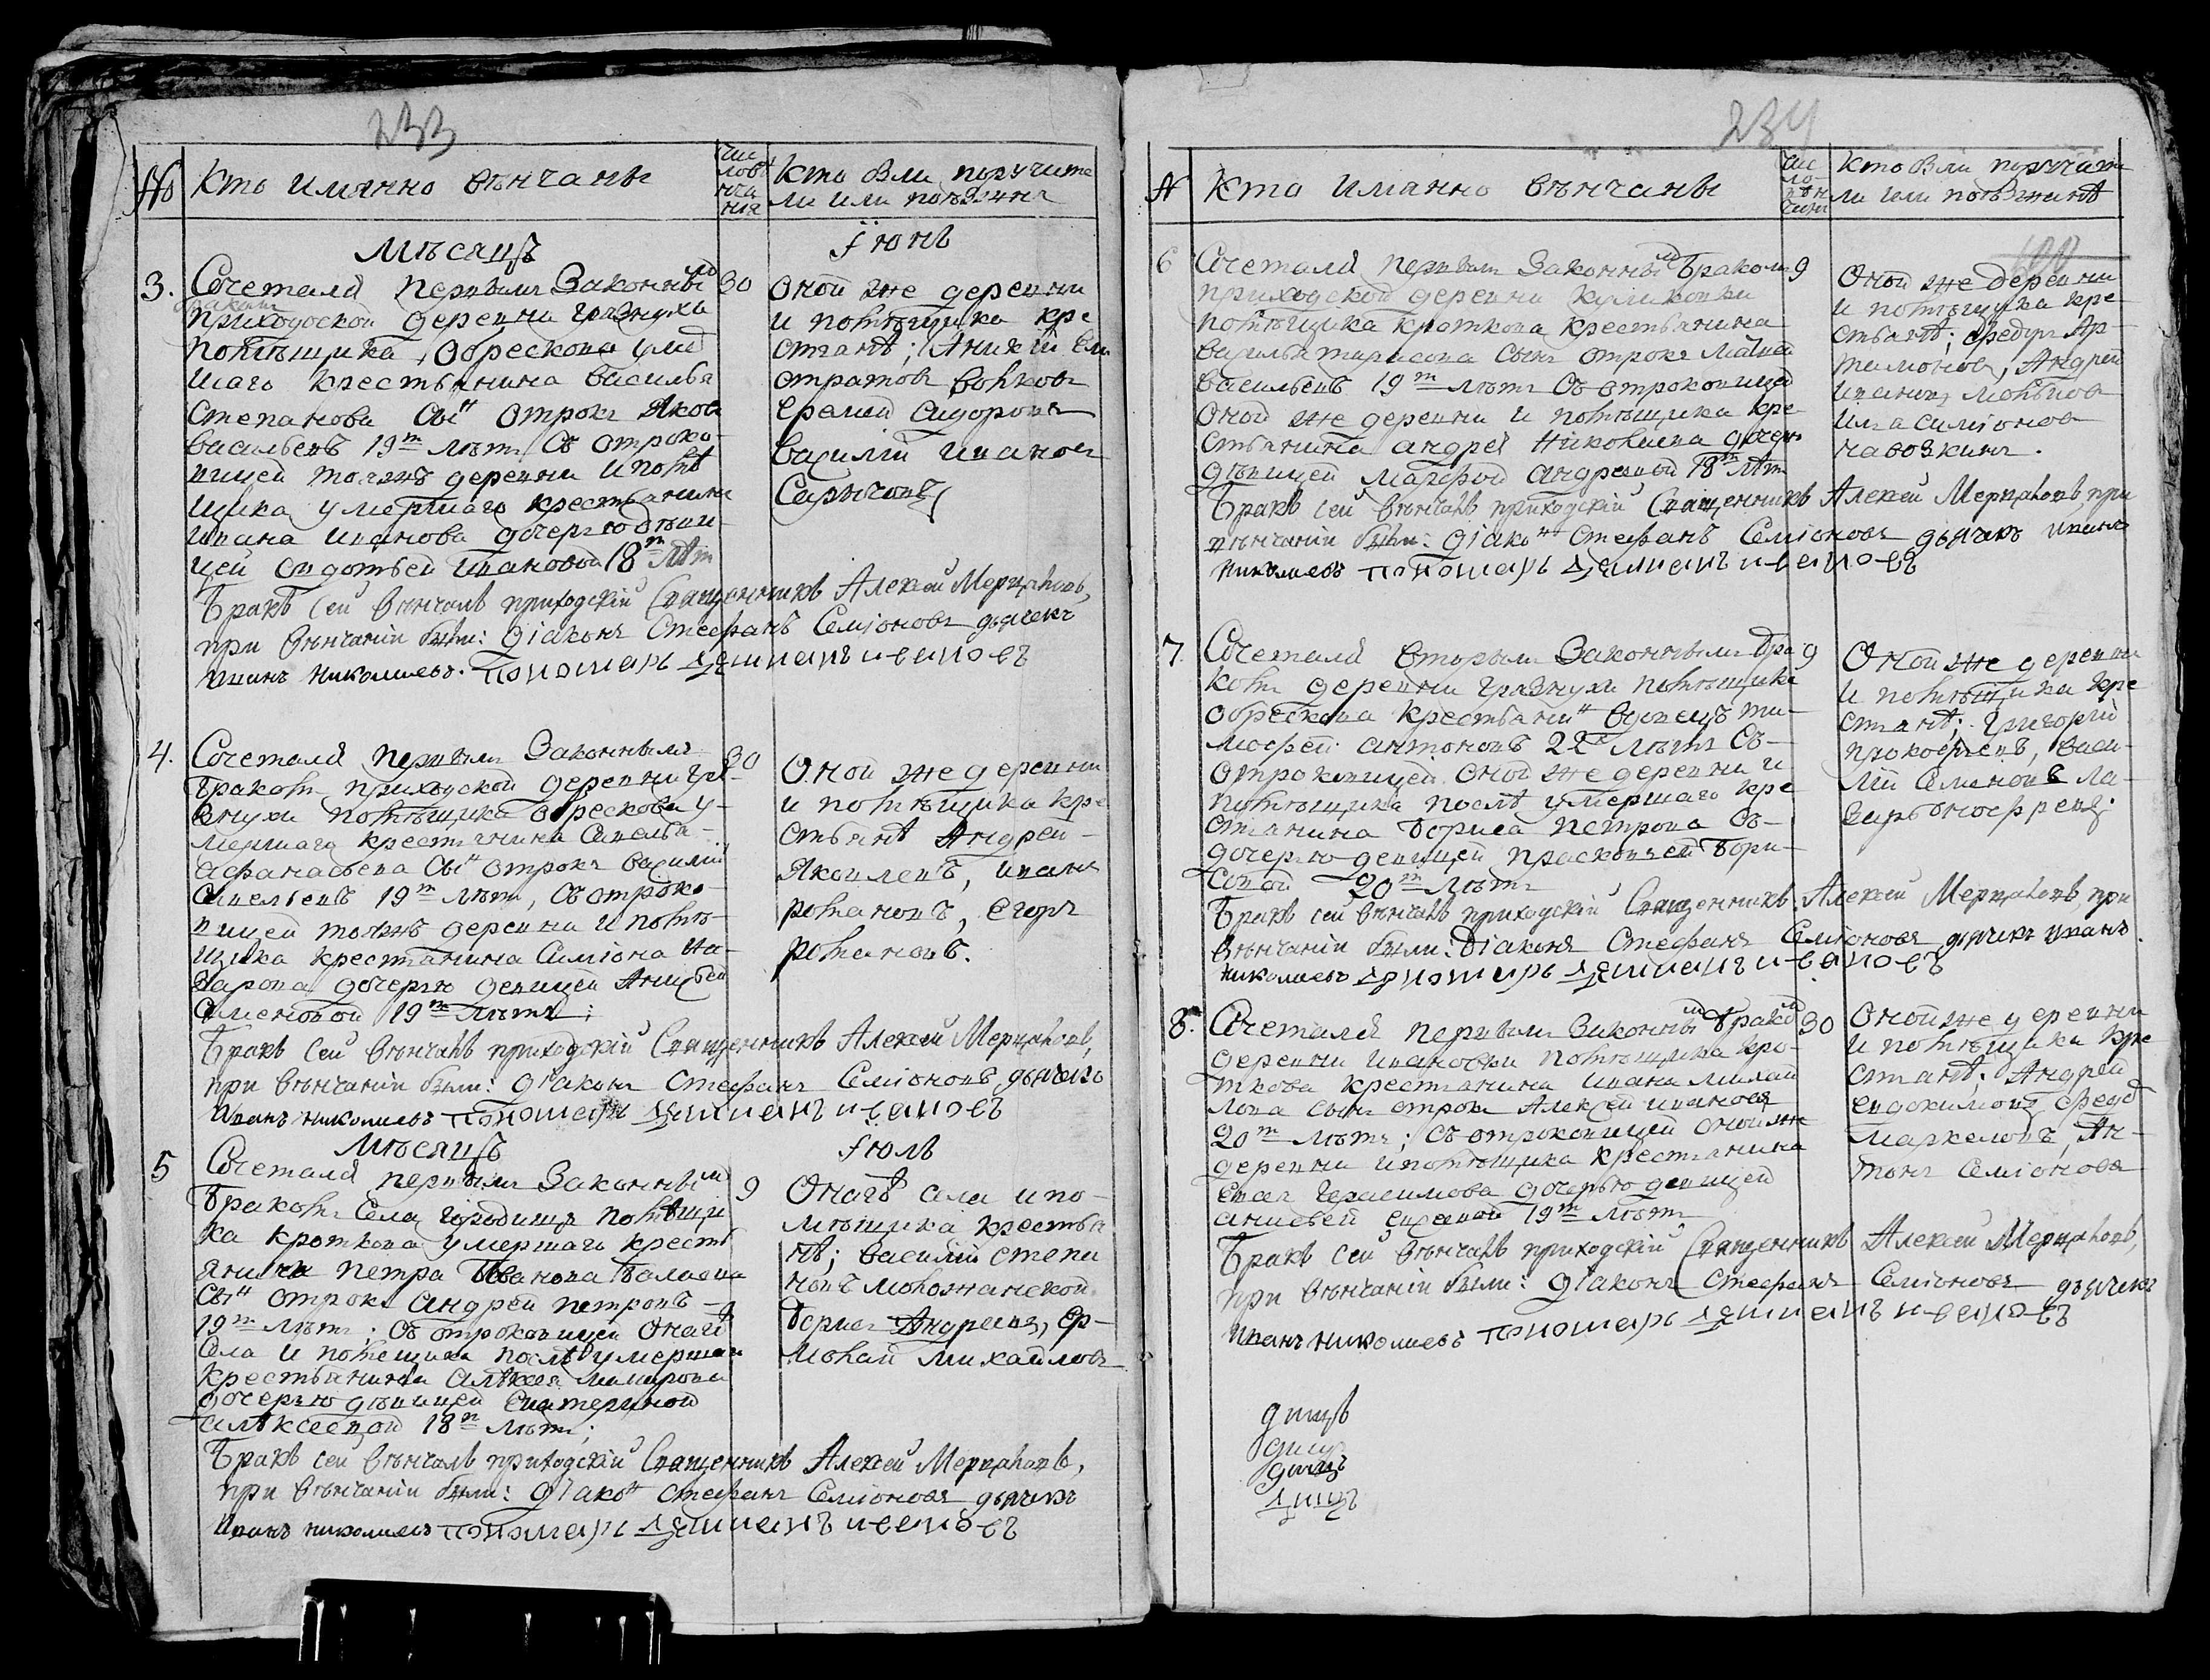 233
№ Кто имянно венчаны
Чис
ло в
нча
ния
Кто вли поручите
ли или поезжня
Месяцъ Iюнь
3. Сочетался первымъ законнымъ 30
бракомъ
приходской деревни грязнухи
помещика Обрескова умер
шаго крестьянина василья
степанова сынъ отрокъ Яковъ
васильевъ 19т летъ съ отроко
вицей тояжъ деревни и поме
щика умершаго крестьянина
ивана иванова дочерью деви
цей евдотьей ивановой 18т летъ
Оной же деревни
и помещика кре
стьяне; Аникий Ели
стратовъ волковъ
еремей сидоровъ
василий ивановъ
Сарычовъ
Бракъ сей венчалъ приходский Священникъ Алексей Мерцаловъ,
при венчании были: дiаконъ Стефанъ Семiоновъ дьячекъ
иванъ николаевъ пономарь демианъ ивановъ
4. Сочетался первымъ законнымъ 30
бракомъ приходской деревни гря-
знухи помещика обрескова у-
мершаго крестьянина савелья
афанасьева сынъ отрокъ василий
савельевъ 19т летъ, съ отроко-
вицей тояжъ деревни и поме-
щика крестьянина Симiона На-
зарова дочерью девицей Анисьей
Семеновой 19т летъ;
Оной же деревни
и помещика кре
стьяне Андрей
Яковлевъ, иванъ
романовъ, Егоръ
романовъ.
Бракъ сей венчалъ приходский Священникъ Алексей Мерцаловъ,
при венчании были: дiаконъ Стефанъ Семiоновъ дьячекъ
Иванъ николаевъ пономарь демианъ ивановъ
Месяцъ Iюль
5 Сочетался первымъ законнымъ 9
бракомъ Села городищъ помещи
ка кроткова умершаго кресть
янина петра Иванова
сынъ отрокъ андрей петровъ
19т летъ; Съ отроковицей Онагожъ
села и помещика после умершаго
крестьянина алексея
дочерью девицей екатериной
алексеевной 18т летъ;
Онагожъ села и по-
мещика крестья
не; василий степа
новъ
Борисъ Андреевъ, Ер-
молай михайловъ
Бракъ сей венчалъ приходский Священникъ Алексей Мерцаловъ,
при венчании были: дiаконъ стефанъ Семiоновъ дьячекъ
Иванъ николаевъ пономарь демианъ ивановъ
234
№ Кто имянно венчаны
Чис
ло
вен
чания
Кто вли поручите
ли или поезжяне
6 Сочетался первымъ законнымъ бракомъ 9
приходской деревни куликовки
помещика кроткова крестьянина
василья тарасова сынъ отрокъ матвей
васильевъ 19т летъ Съ отроковицей
оной же деревни и помещика кре
стьянина андрея николаева дочерью
девицей марфой андреевной 18т летъ
Оной же деревни
и помещика кре
стьяне; федоръ Ар-
тамоновъ, Андрей
ивановъ
ила симiоновъ
Бракъ сей венчалъ приходский Священникъ Алексей Мерцаловъ, при
венчании были: дiаконъ Стефанъ Семiоновъ дьячекъ иванъ
николаевъ пономарь демианъ ивановъ
7. Сочетался вторымъ законнымъ бра 9
комъ деревни грязнухи помещика
обрескова крестьянинъ вдовецъ ти-
мофей антоновъ 22х летъ съ
отроковицей оной же деревни и
помещика после умершаго кре
стьянина бориса петрова съ
дочерью девицей прасковьей бори-
совой 20т летъ
Оной же деревни
и помещика кре
стьяне; григорiй
прокофьевъ, васи-
лий Семеновъ ла-
зарь
Бракъ сей венчалъ приходский Священникъ Алексей Мерцаловъ, при
венчании были: дiаконъ Стефанъ Семiоновъ дьячекъ иванъ
николаевъ пономарь демианъ ивановъ
8. Сочетался первымъ законнымъ бракомъ 30
деревни ивановки помещика кро-
ткова крестьянина ивана михай
лова сынъ отрокъ Алексей ивановъ
20т летъ; съ отроковицей оной же
деревни и помещика крестьянина
герасимова дочерью девицей
анисьей 19т летъ
Оной же деревни
и помещика кре
стьяне; Андрей
евдокимовъ федоръ
маркеловъ, Ан-
тонъ Семiоновъ
Бракъ сей венчалъ приходский Священникъ Алексей Мерцаловъ,
при венчании были: дiаконъ Стефанъ Семiоновъ дьячекъ
Иванъ николаевъ пономарь демианъ ивановъ